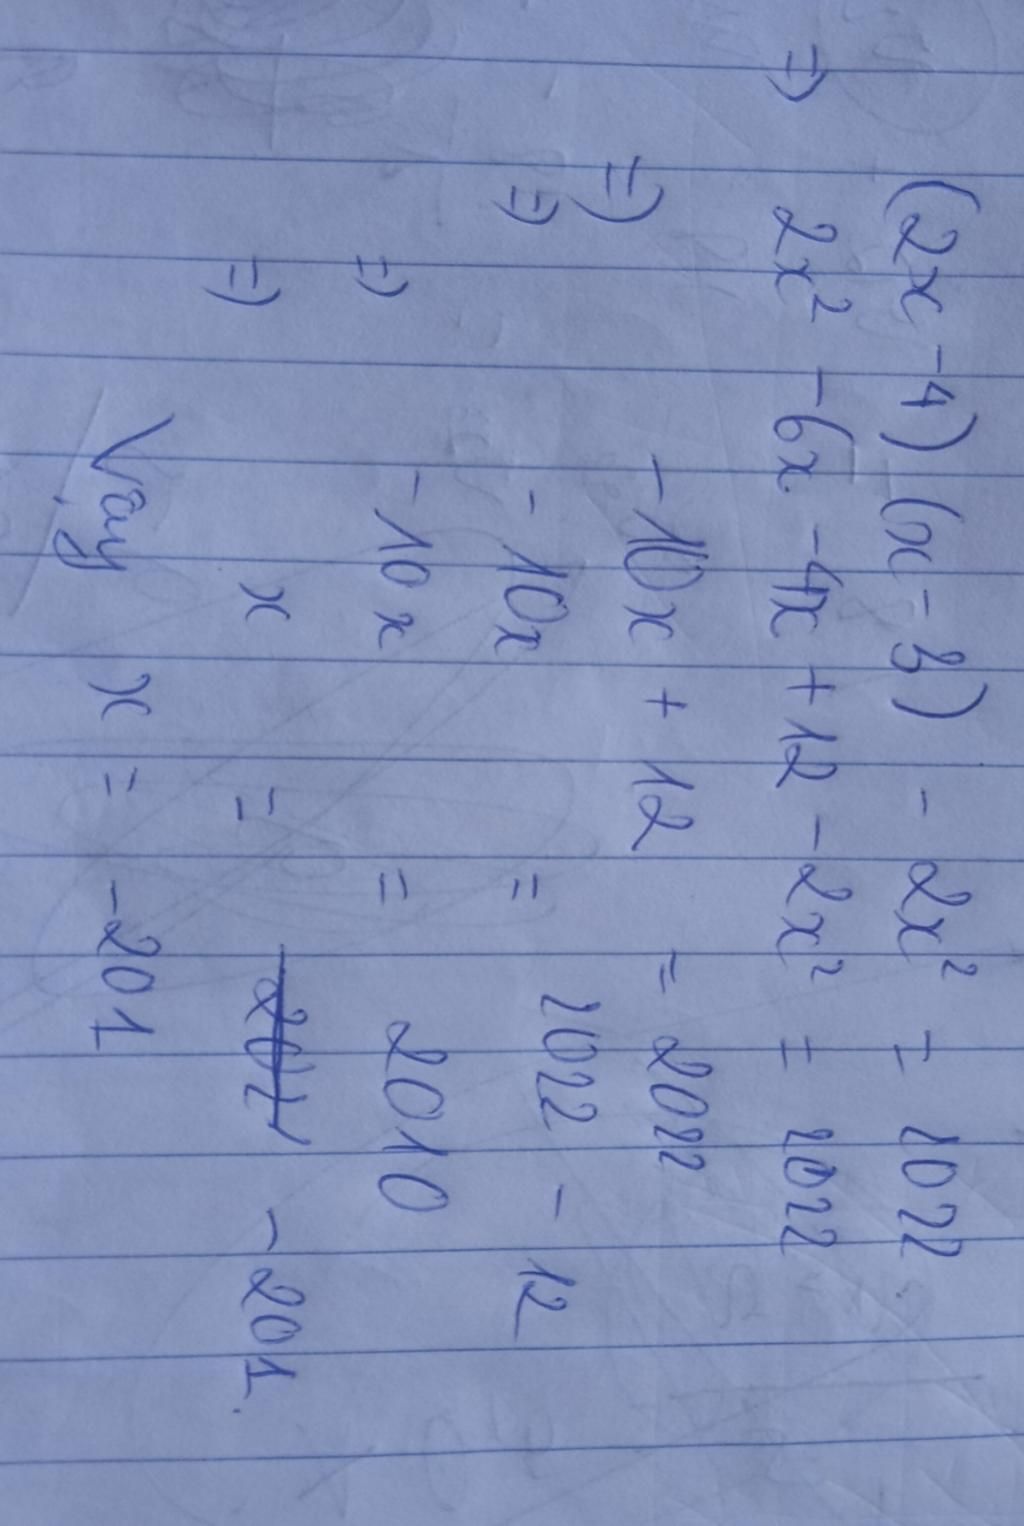 (2x - 4) (x - 3) - 2x² = 2022
=) 2x² - 6x - 4x + 12 - 2x² = 2022
=) - 10x + 12 = 2022
=) - 10x = 2022 - 12
=) - 10x = 2010
=) x = - 201.
Vậy x = - 201